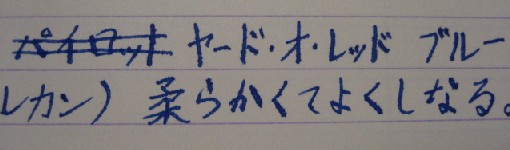 パイロット ヤード・オ・レッド ブルー
レカン) 柔らかくてよくしなる。